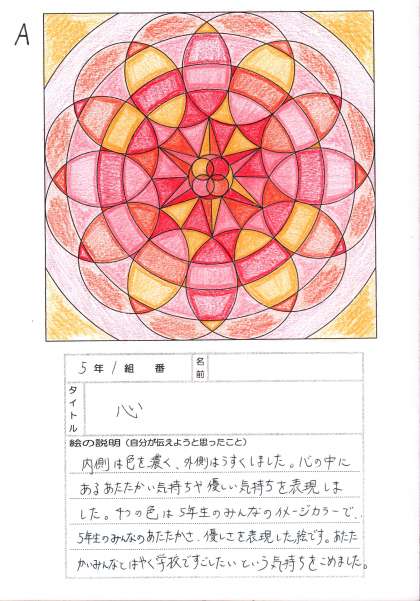 A
5年1組 番 名前
タイトル 心
絵の説明(自分が伝えようと思ったこと)
内側は色を濃く、外側はうすくしました。心の中に
あるあたたかい気持ちや優しい気持ちを表現しま
した。4つの色は5年生のみんなのイメージカラーで、
5年生のみんなのあたたかさ、優しさを表現した絵です。あたた
かいみんなとはやく学校ですごしたいという気持ちをこめました。